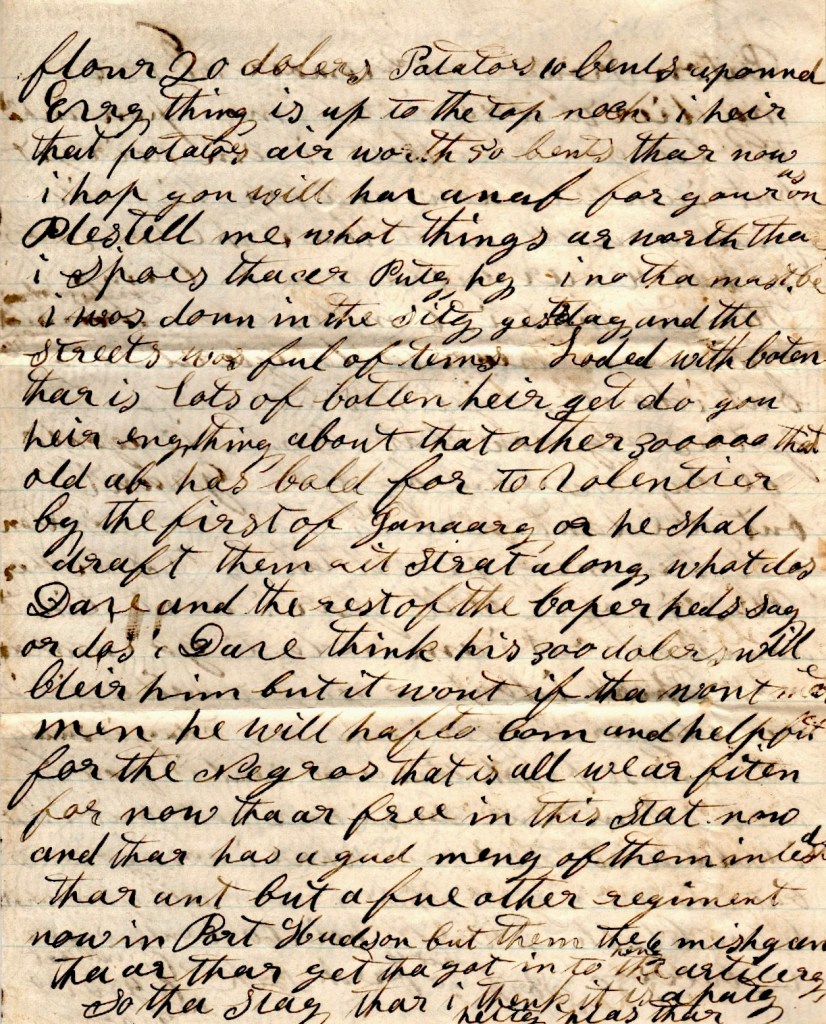 flour 20 dolers Potators 10 cents apound
Erry thing is up to the top noch i heir
that potatos air worth 50 cents thar now
i hop you will hav anaf for your as on
Ples tell me what things ar worth tha
i spoes tha cer Puty hy i no tha mast be
i was doun in the sity yesterday and the
streets was ful of tems Loded with coten
thar is lots of cotten heir yet do you
heir eny thing about that other 300000 that
old ab has cald for to Volentier
by the first of Janaary or he shal
draft them rit strat along what dos
Dave and the rest of the coper heds say
or dos Dave think his 300 dolers will
cleir him but it wont if tha wont
men he will hafto com and help fit
for the Negros that is all we ar fiten
for now tha ar free in this Stat now
and thar has a gud meny of them inlested
thar ant but a fue other regiment
now in Port Hudson but them the 6 mishgan
tha ar thar yet tha got in to the hevy artilery
So tha Stay thar i think it is a puty
helty plas thar